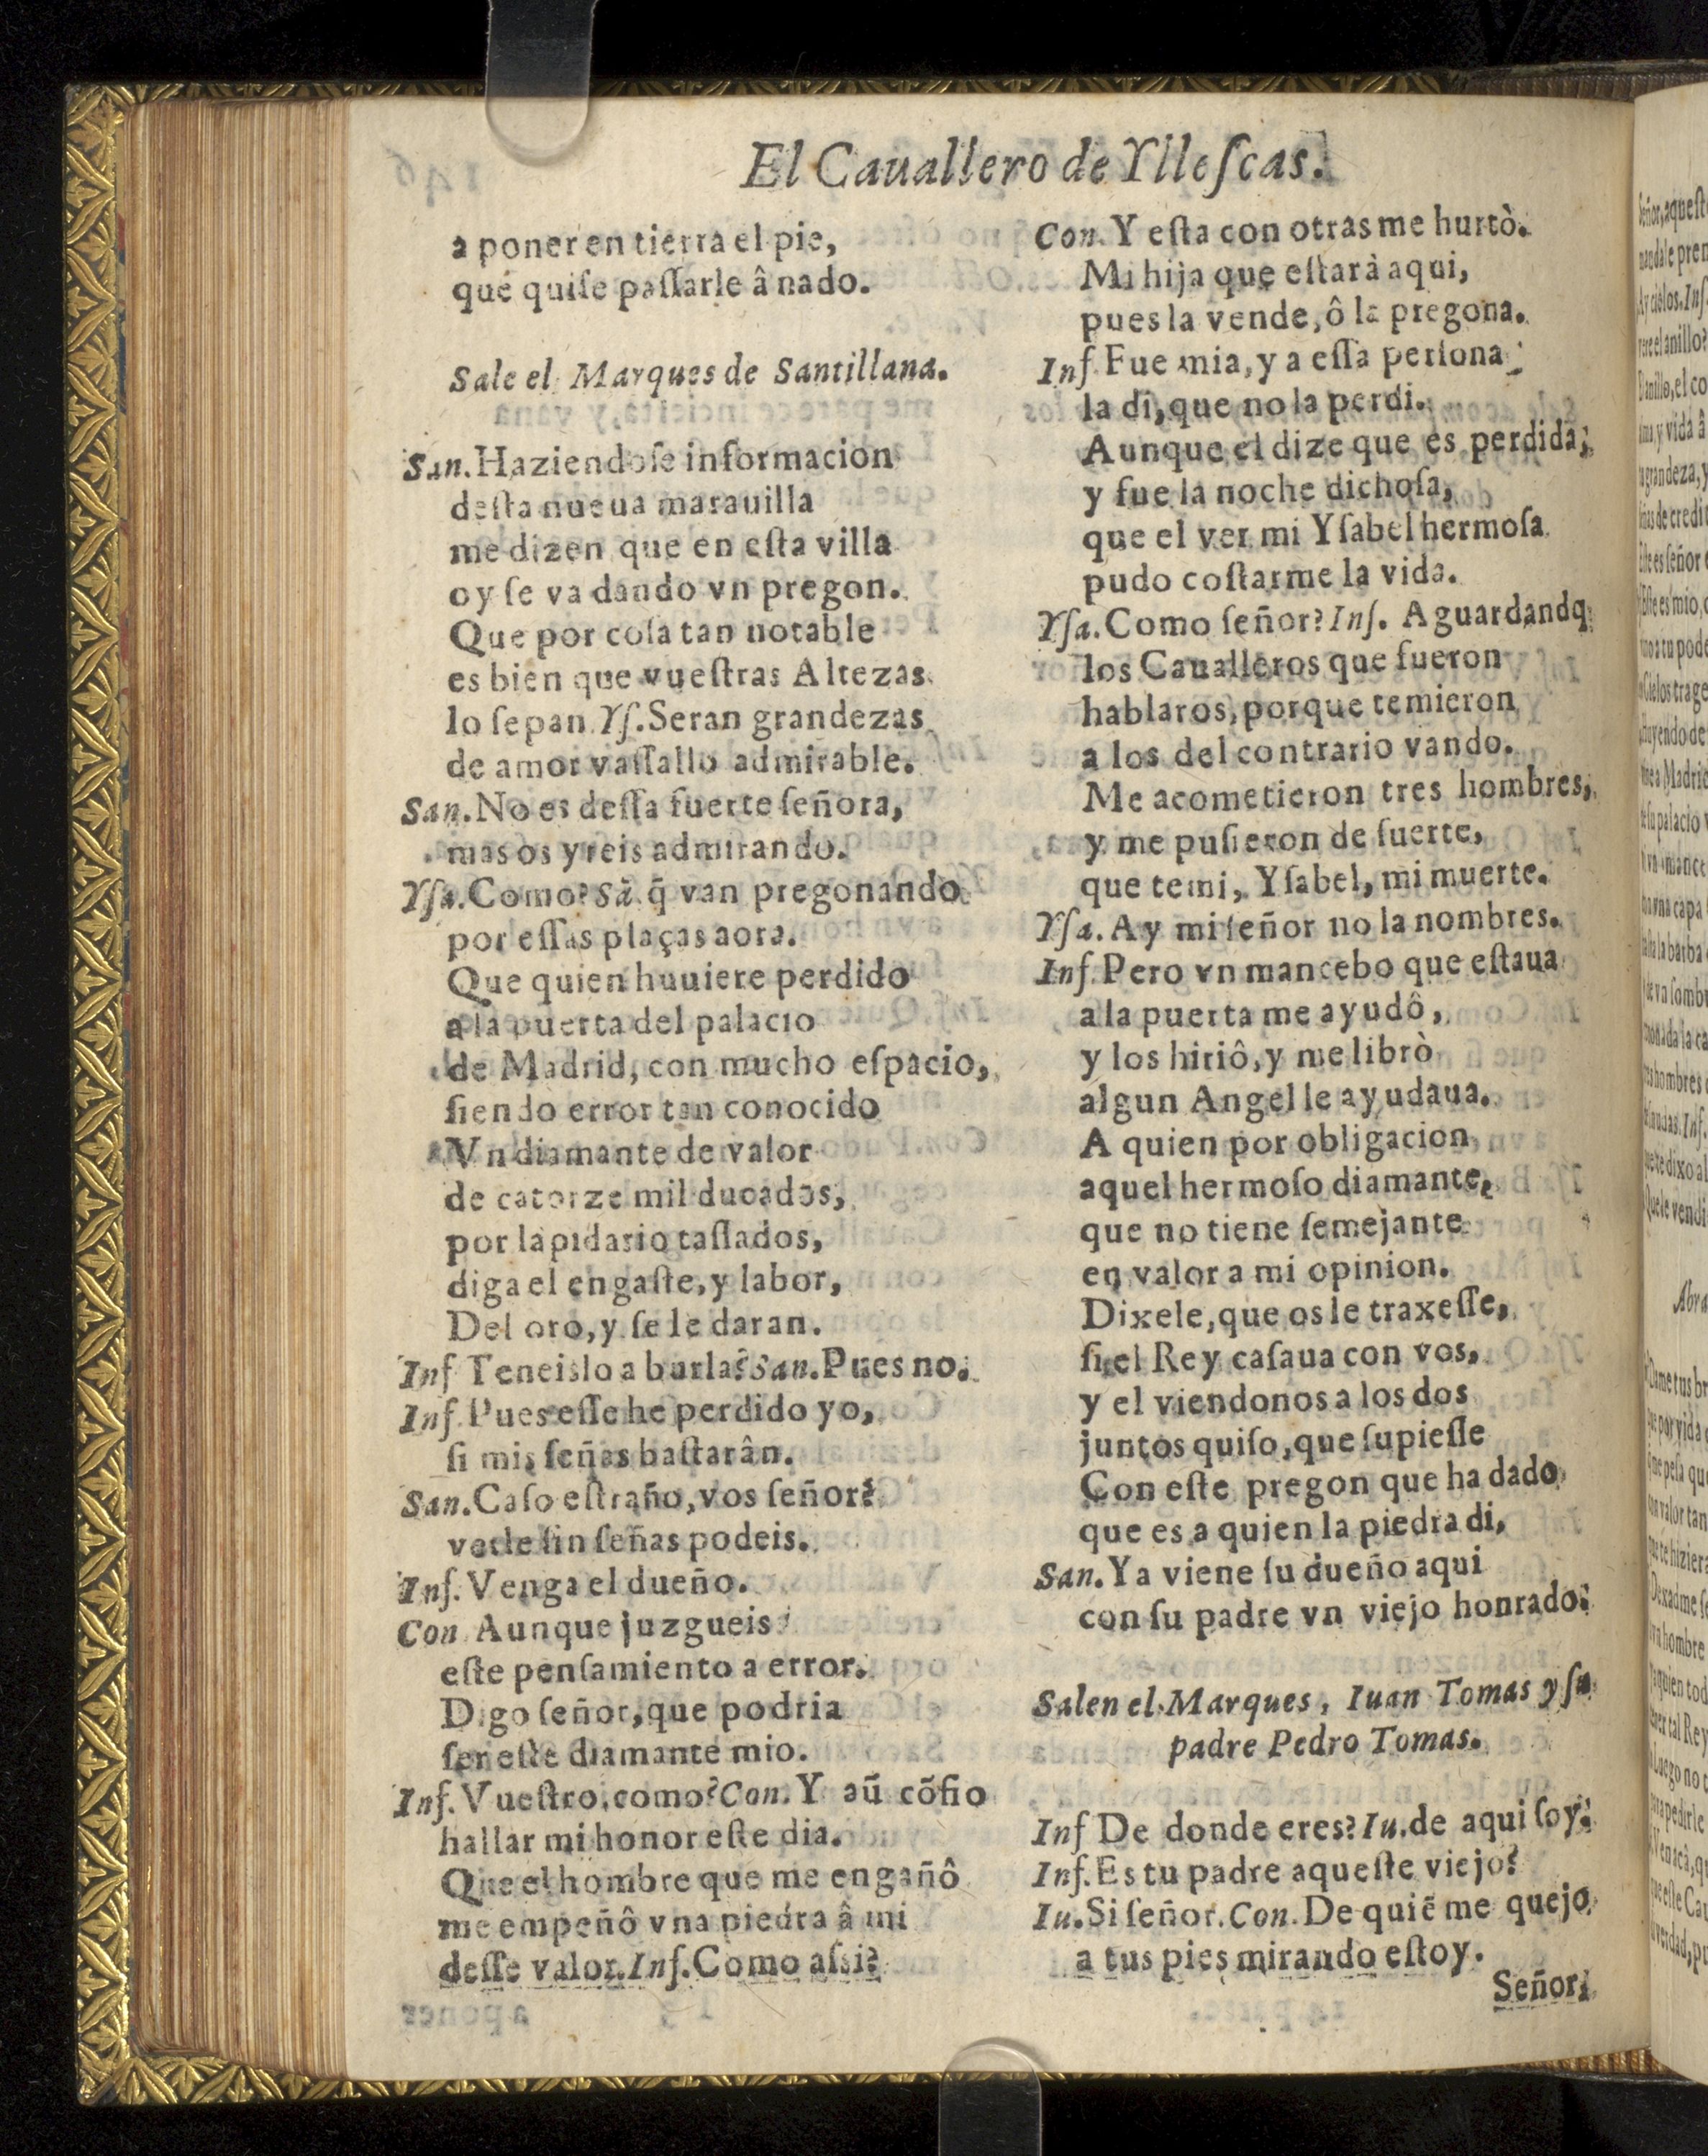 El Cauallero de Ylleſcas.
a poner en tierra el pie,
que quiſe paſſarle â nado.
Sale el Marques de Santillana.
San. Haziendoſe informacion
deſta nueua marauilla
me dizen que en eſta villa
oy ſe va dando vn pregon.
Que por coſa tan notable
es bien que vueſtras Altezas
lo ſepan. Yſ. Seran grandezas
de amor vaſſallo admirable.
San. No es deſſa ſuerte ſeñora,
mas os yreis admirando.
Yſa. Como? Sã. q̃ van pregonando
por eſſas plaças aora.
Que quien huuiere perdido
a la puerta del palacio
de Madrid, con mucho eſpacio,
ſiendo error tan conocido
Vn diamante de valor
de catorze mil ducados,
por lapidario taſſados,
diga el engaſte, y labor,
Del oro, y ſe le daran.
Inf Teneislo a burla? San. Pues no.
Inf. Pues eſſe he perdido yo,
ſi mis ſeñas baſtarân.
San. Caſo eſtraño, vos ſeñor?
verle ſin ſeñas podeis.
Inf. Venga el dueño.
Con Aunque juzgueis
eſte penſamiento a error.
Digo ſeñor, que podria
ſer eſte diamante mio.
Inf. Vueſtro, como? Con. Y aũ cõfio
hallar mi honor eſte dia.
Que el hombre que me engañô
me empeñô vna piedra â mi
deſſe valor. Inf. Como aſsi?
Con. Y eſta con otras me hurtò.
Mi hija que eſtarà aqui,
pues la vende, ô la pregona.
Inf Fue mia, y a eſſa perſona
la di, que no la perdi.
Aunque el dize que es perdida,
y fue la noche dichoſa,
que el ver mi Yſabel hermoſa
pudo coſtarme la vida.
Yſa. Como ſeñor? Inf. Aguardando
los Caualleros que fueron
hablaros, porque temieron
a los del contrario vando.
Me acometieron tres hombres,
y me puſieron de ſuerte,
que temi, Yſabel, mi muerte.
Yſa. Ay mi ſeñor no la nombres.
Inf. Pero vn mancebo que eſtaua
a la puerta me ayudô,
y los hiriô, y me librò
algun Angel le ayudaua.
A quien por obligacion
aquel hermoſo diamante,
que no tiene ſemejante
en valor a mi opinion.
Dixele, que os le traxeſſe,
ſi el Rey caſaua con vos,
y el viendonos a los dos
juntos quiſo, que ſupieſſe
Con eſte pregon que ha dado
que es a quien la piedra di,
San. Ya viene ſu dueño aqui
con ſu padre vn viejo honrado.
Salen el Marques, Iuan Tomas y ſu
padre Pedro Tomas.
Inf De donde eres? Iu. de aqui ſoy.
Inf. Es tu padre aqueſte viejo?
Iu. Si ſeñor. Con. De quiẽ me quejo
a tus pies mirando eſtoy.
Señor,